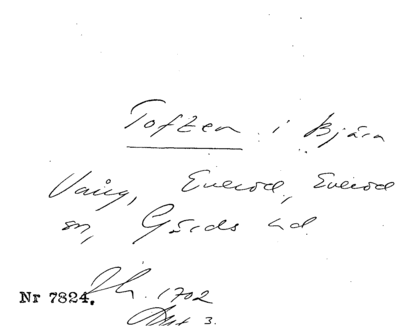 Toften i Bjära
Vång, Everöd, Everöd
sn, Gärds hd
Jh. 1702
Nr 7824.
Akt 3.